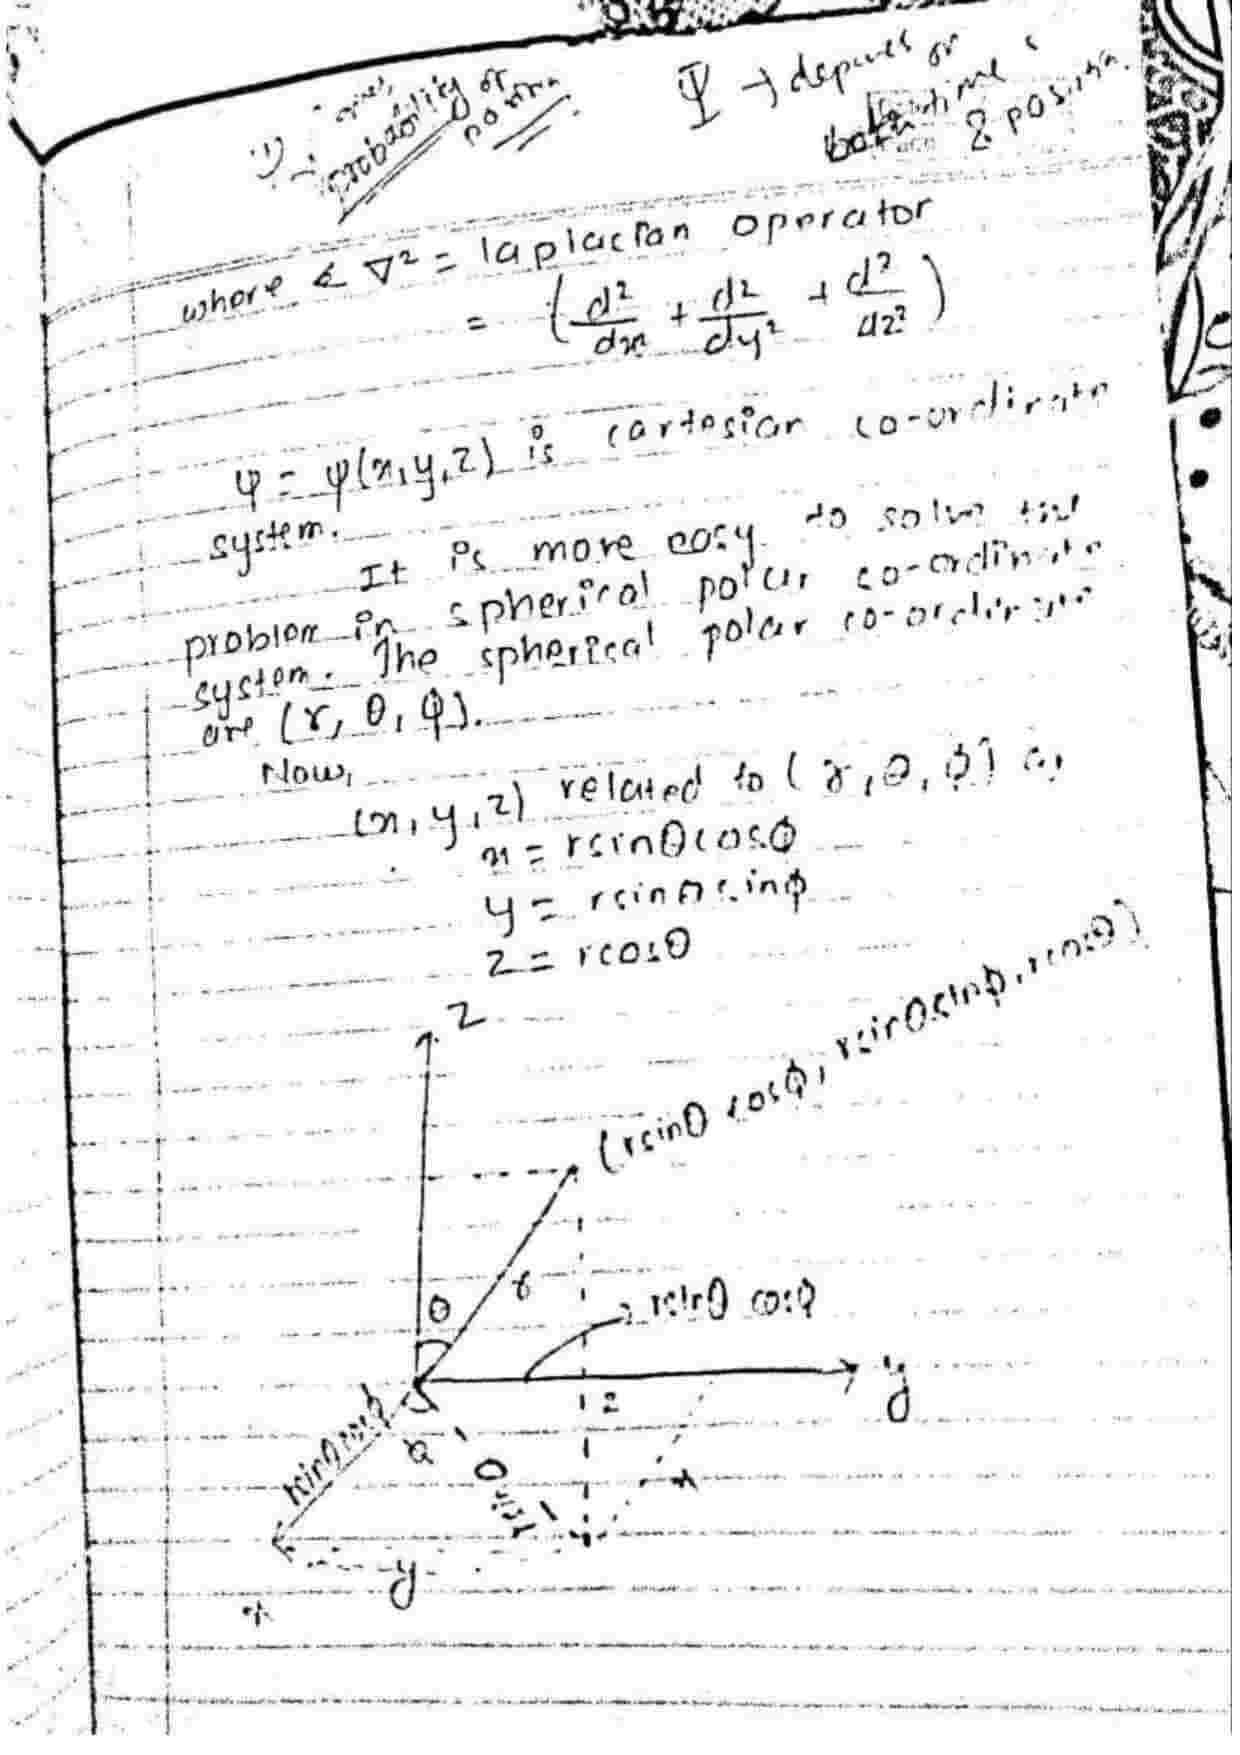 gives
ψ → probability of
position
Ψ → depends on
both time
& position.
where & ∇² = laplacian operator
= (d²/dx + d²/dy² + d²/dz²)
ψ = ψ(x,y,z) is cartesian co-ordinate
system.
It is more easy to solve this
problem in spherical polar co-ordinate
system. The spherical polar co-ordinate
are (r, θ, φ).
Now,
(x, y, z) related to (r, θ, φ) as
x = rsinθcosφ
y = rsinθsinφ
z = rcosθ
z
(rsinθ cosφ, rsinθsinφ, rcosθ)
θ
r
rsinθ cosφ
y
z
rsinθcosφ
rsinθ
x
y
x